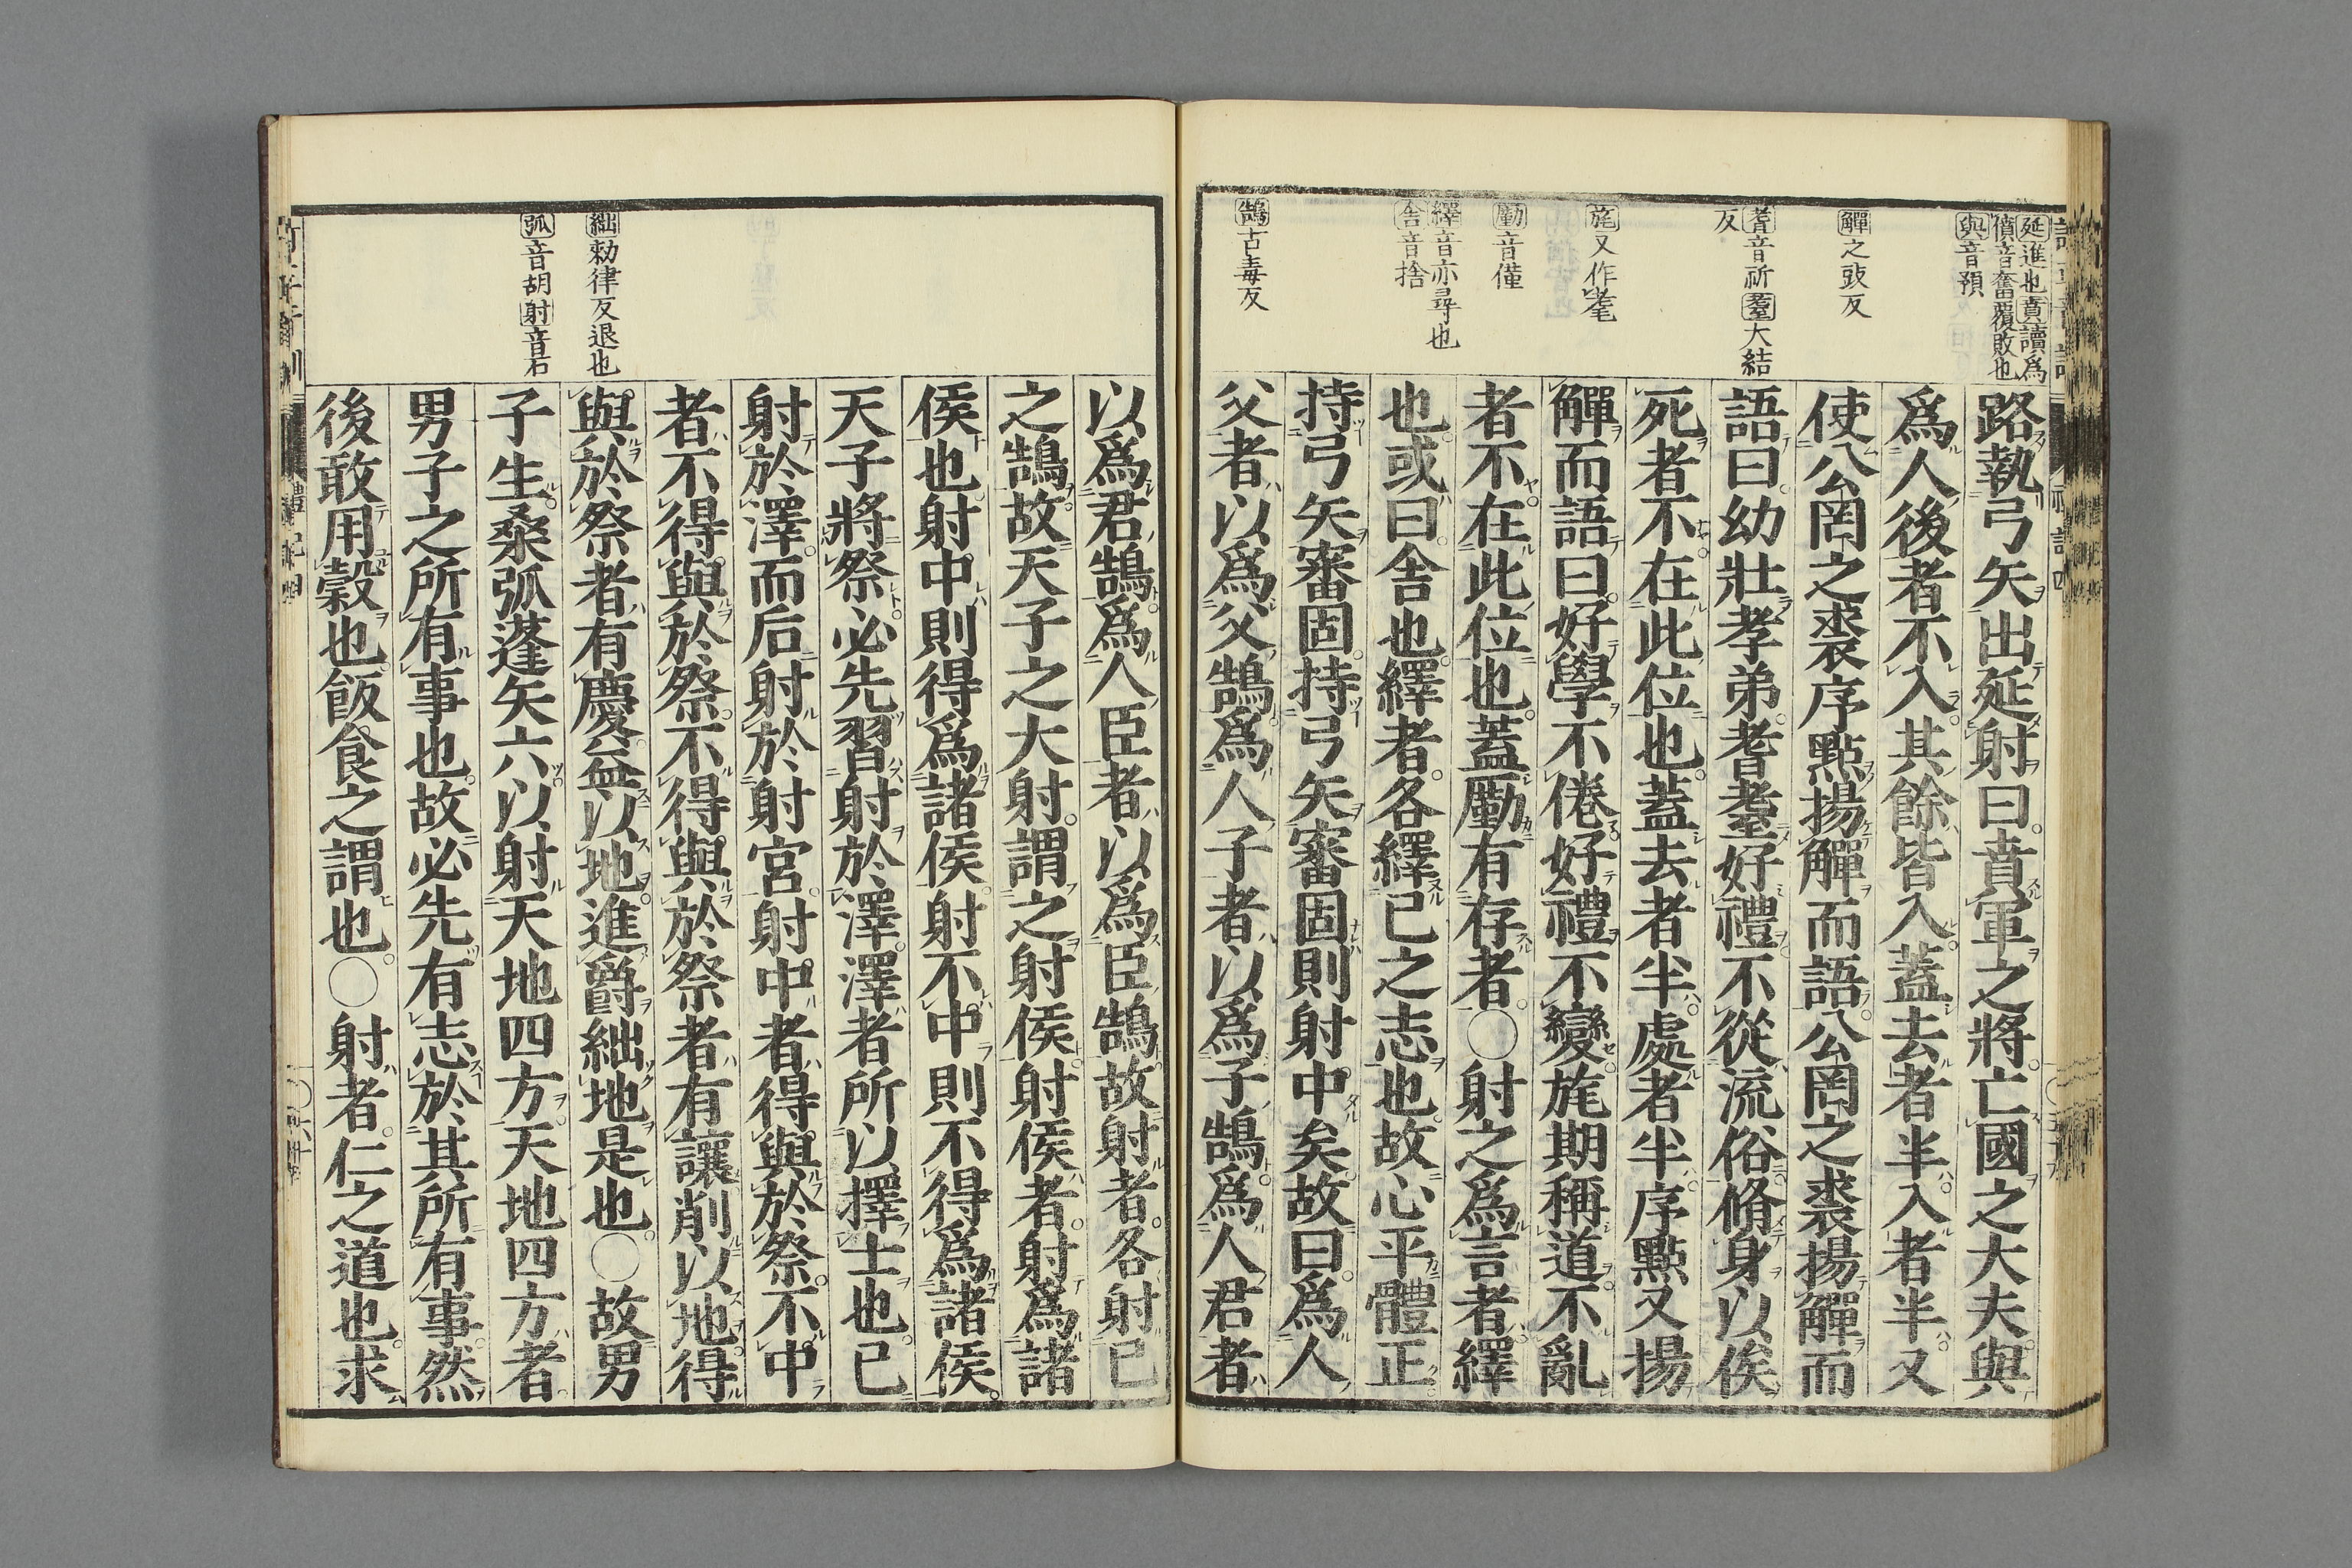 延進也賁讀爲
僨音奮覆敗也
與音預
觶之豉反
耆音祈耋大結
反
旄又作耄
勵音僅
繹音亦尋也
舎音捨
鵠古毒反
路執弓矢出延射曰賁軍之將亡國之大夫與
爲人後者不入其餘皆入蓋去者半入者半又
使公罔之裘序點揚觶而語公罔之裘揚觶而
語曰幼壯孝弟耆耋好禮不從流俗脩身以俟
死者不在此位也蓋去者半處者半序點又揚
觶而語曰好學不倦好禮不變旄期稱道不亂
者不在此位也蓋勵有存者○射之爲言者繹
也或曰舎也繹者各繹已之志也故心平體正
持弓矢審固持弓矢審固則射中矣故曰爲人
父者以爲父鵠爲人子者以爲子鵠爲人君者
絀勑律反退也
弧音胡射音石
以爲君鵠爲人臣者以爲臣鵠故射者各射已
之鵠故天子之大射謂之射侯射侯者射爲諸
侯也射中則得爲諸侯射不中則不得爲諸侯
天子將祭必先習射於澤澤者所以擇士也已
射於澤而后射於射宮射中者得與於祭不中
者不得與於祭不得與於祭者有讓削以地得
與於祭者有慶益以地進爵絀地是也○故男
子生桑弧蓬矢六以射天地四方天地四方者
男子之所有事也故必先有志於其所有事然
後敢用穀也飯食之謂也○射者仁之道也求